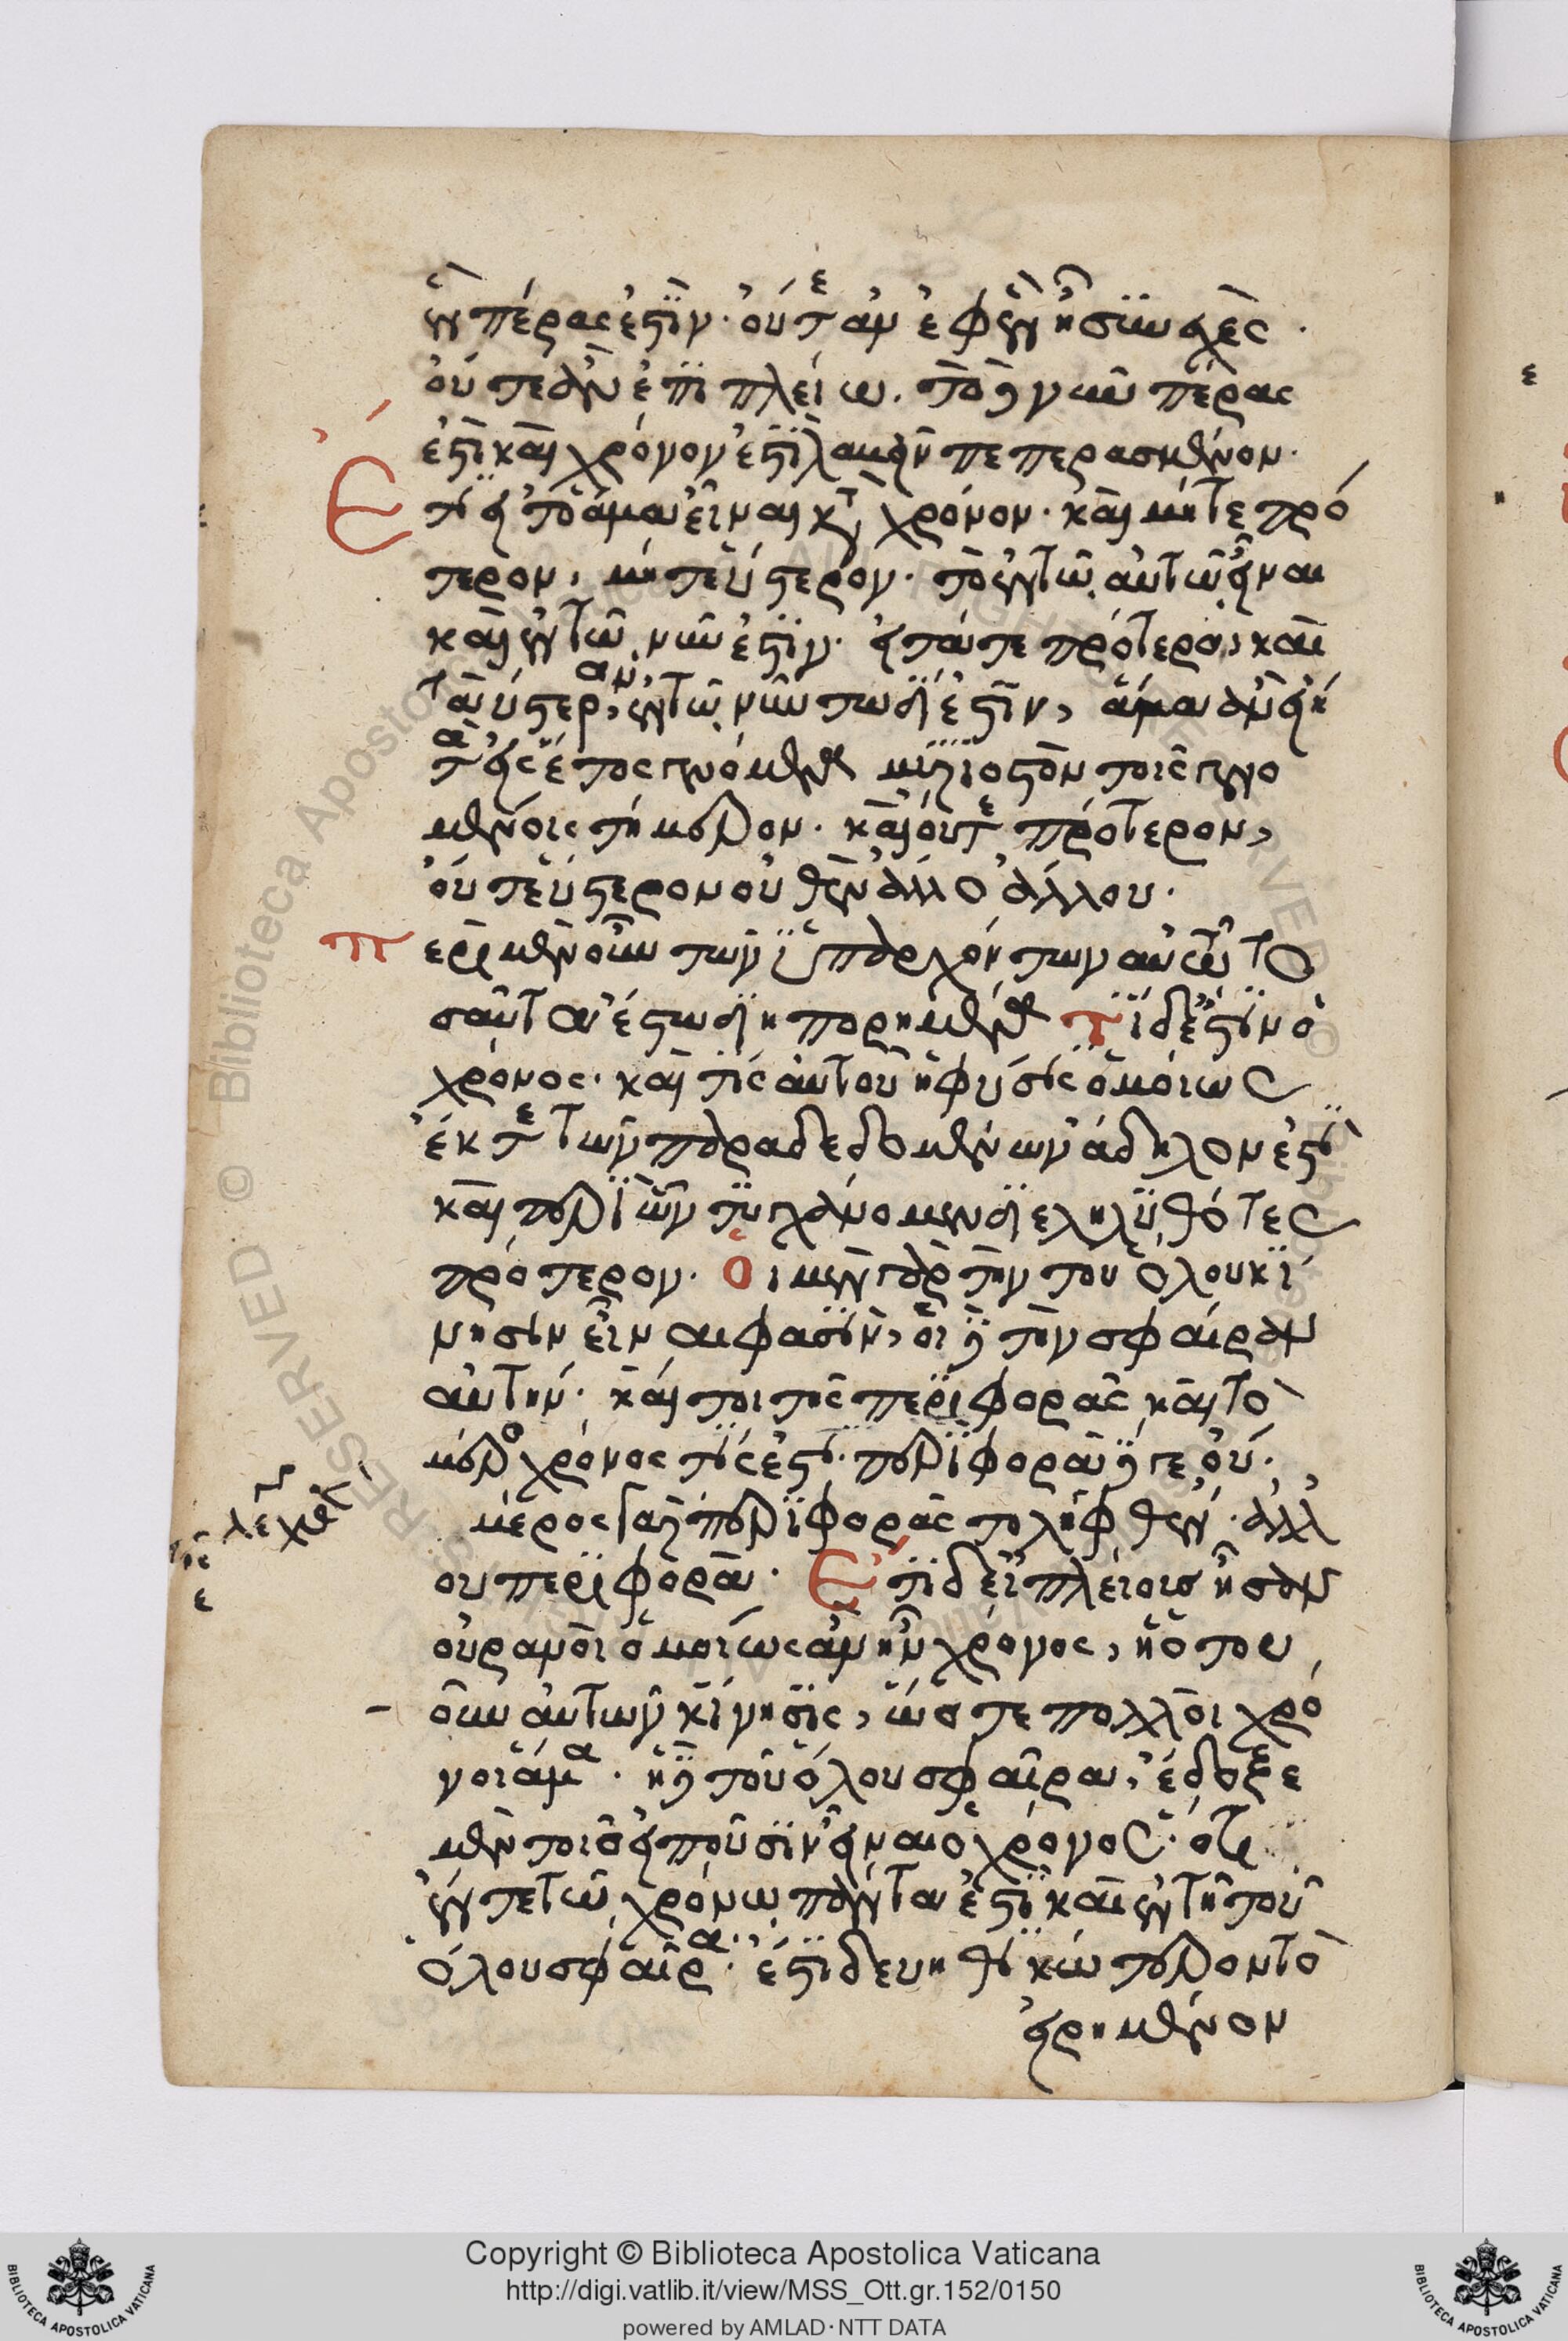 ἓν πέρας ἐστίν· οὔτε ἂν ἐφ' ἓν ᾖ συνεχὲς·
οὔτε ἂν ἐπὶ πλείω. τὸ δὲ νῦν πέρας
ἐστὶ καὶ χρόνον ἔστι λαβεῖν πεπερασμένον·
Ἔτι εἰ τὸ ἅμα εἶναι κατὰ χρόνον· καὶ μήτε πρό
τερον, μήτε ὕστερον· τὸ ἐν τῶ αὐτῶ εἶναι
καὶ ἐν τῶ νῦν ἐστίν· εἰ τά τε πρότερα, καὶ
τὰ ὕστερον, ἐν τῶ νῦν τωδί ἐστιν, ἅμα ἂν εἴη
τὰ εἰς ἔτος γενόμενα μυριοστὸν τοῖς γενο
μένοις τήμερον· καὶ οὔτε πρότερον,
οὔτε ὕστερον οὐθὲν ἄλλο ἄλλου·
περὶ μὲν οὖν τῶν ὑπαρχόντων αὐτῶ το
σαῦτα ἔστω διηπορημένα τί δέ ἐστιν ὁ
χρόνος· καὶ τίς αὐτοῦ ἡ φύσις ὁμοίως
ἔκ τε τῶν παραδεδομένων ἄδηλον ἐστὶ
καὶ περὶ ὧν τυγχάνομεν διεληλυθότες
πρότερον· οἱ μὲν γὰρ τὴν τοῦ ὅλου κί
νησιν εἶναι φασὶν, οἱ δὲ τὴν σφαῖραν
αὐτήν· καίτοι τῆς περιφορᾶς καὶ τὸ
μέρος χρόνος τίς ἐστι· περιφορὰ δέ γε οὔ·
μέρος γὰρ περιφορᾶς τὸ ληφθέν· ἀλλ
οὐ περιφορά· Ἔτι δ' εἰ πλείους ἦσαν
οὐρανοὶ ὁμοίως ἂν ἦν χρόνος, ἡ ὁτου
οῦν αὐτῶν κίνησις, ὥστε πολλοὶ χρό
νοι ἅμα· ἡ δὲ τοῦ ὅλου σφαῖρα, ἔδοξε
μὲν τοῖς εἰποῦσιν εἶναι ὁ χρόνος· ὅτι
ἔν τε τῶ χρόνω πάντα ἐστὶ καὶ ἐν τῆ τοῦ
ὅλου σφαίρα· ἔστι δ' εὐηθικώτερον τὸ
εἰρημένον
Copyright © Biblioteca Apostolica Vaticana
http://digi.vatlib.it/view/MSS_Ott.gr.152/0150
powered by AMLAD·NTT DATA